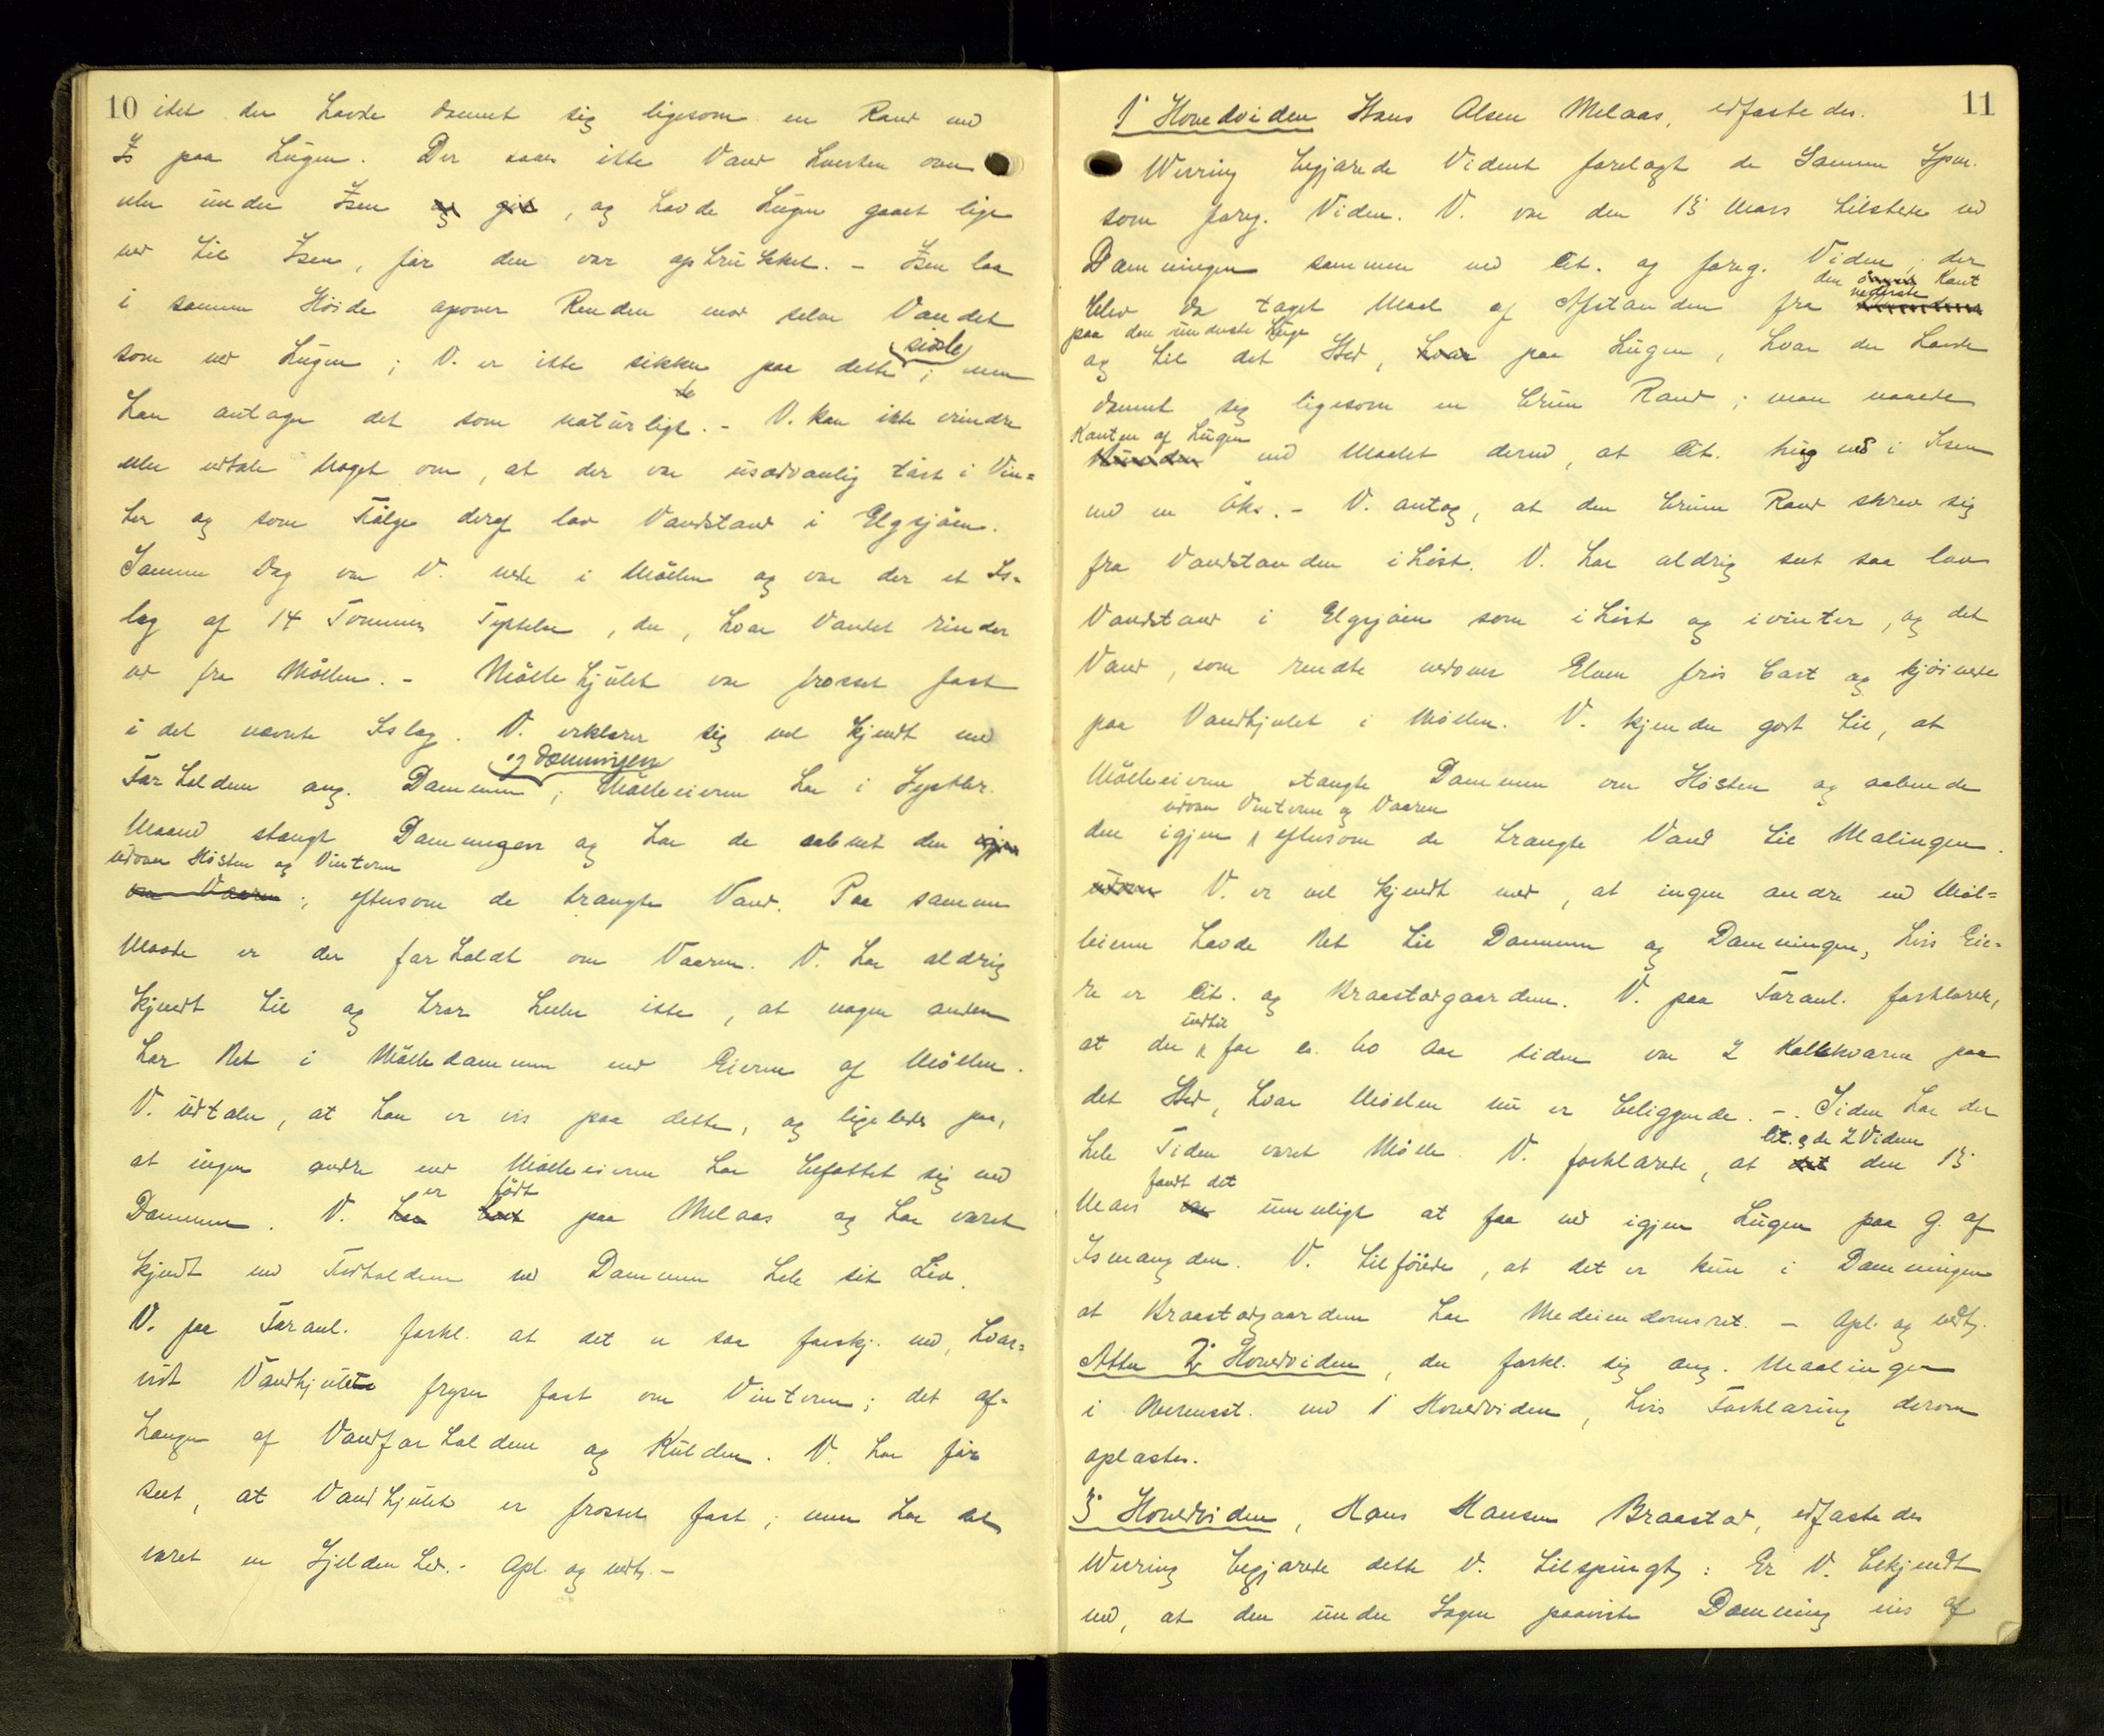 10
idet der havde dannet sig ligesom en Rand med
Is paa Lugen. Der saaes ikke Vand hverken over
eller under Isen og gik, og havde Lugen gaaet lige
ned til Isen, før den var optrukket. – Isen laa
i samme Høide apover Renden mod selve Vandet
som ved Lugen; V. er ikke sikker paa dette sidste; men
han antager det som naturligste. – V. kan ikke erindre
eller udtale Noget om, at der var usædvanlig tørt i Vin=
ter og som Følge deraf lav Vandstand i Elgsjøen.
Samme Dag var V. nede i Møllen og var der et Is=
lag af 14 Tommers Tykkelse, der, hvor Vandet rinder
ud fra Møllen. – Møllehjulet var frosset fast
i det nævnte Islag. V. erklærer sig vel kjendt med
Forholdene ang. Dammen og Dæmningen; Mølleeierne har i Septbr.
Maaned stængt Dæmningen og har de aabnet den igjen
om Vaaren udover Høsten og Vinteren; eftersom de trængte Vand. Paa samme
Maade er der forholdt om Vaaren. V. har aldrig
kjendt til og tror heller ikke, at nogen anden
har Ret i Mølledammen end Eierne af Møllen.
V. udtaler, at han er vis paa dette, og ligeledes paa,
at ingen andre end Mølleeierne har befattet sig med
Dammen. V. har boet er født paa Melaas og har været
kjendt med Forholdene ved Dammen hele sit Liv.
V. paa Foranl. forkl. at det er saa forskj. med, hvor=
vidt Vandhjulet fryser fast om Vinteren; det af=
hænger af Vandforholdene og Kulden. V. har før
seet, at Vandhjulet er frosset fast; men har det
været en Sjeldenhed. – Opl. og vedt. –
11
1' Hovedvidne Hans Olsen Melaas, edfæstedes.
Wexring begjærede Vidnet forelagt de Samme Spm.
som foreg. Vidne. V. var den 15 Mars tilstede ved
Dæmningen sammen med Cit. og foreg. Vidne; der
blev da taget Maal af Afstanden fra den øverste nederste Kant
paa den underste Luge
og til det Sted, hvor paa Lugen, hvor der havde
dannet sig ligesom en brun Rand; man naaede
Kanten af Lugen med Maalet derved, at Cit. hug ned i Isen
med en Øks. – V. antog, at den brune Rand skrev sig
fra Vandstanden ihøst. V. har aldrig seet saa lav
Vandstand i Elgsjøen som ihøst og ivinter, og det
Vand, som rendte nedover Elven frøs bort og kjøvede
paa Vandhjulet i Møllen. V. kjender godt til, at
Mølleeierne stængte Dammen om Høsten og aabnede
den igjen udover Vinteren og Vaaren eftersom de trængte Vand til Malingen.
udover V. er vel kjendt med, at ingen andre end Møl=
leierne havde Ret til Dammen og Dæmningen, hvis Eie=
re er Cit. og Braastadgaardene. V. paa Foranl. forklarede,
at der indtil for ca. 60 Aar siden var 2 Kallekværne paa
det Sted, hvor Møllen nu er beliggende. –. Siden har der
hele Tiden været Mølle. V. forklarede, at det Cit. og de 2 Vidner den 15
Mars var fandt det umuligt at faa ned igjen Lugen paa G. af
Ismængden. V. tilføiede, at det er kun i Dæmningen
at Braastadgaardene har Medeiendomsret. – Opl. og vedt.
Atter 2' Hovedvidne, der forkl. sig ang. Maalingen
i Overensst. med 1' Hovedvidne, hvis Forklaring derom
oplæstes.
3' Hovedvidne, Hans Hansen Braastad, edfæstedes
Wexring begjærede dette V. tilspurgt: Er V. bekjendt
med, at den under Sagen paaviste Dæmning eies af